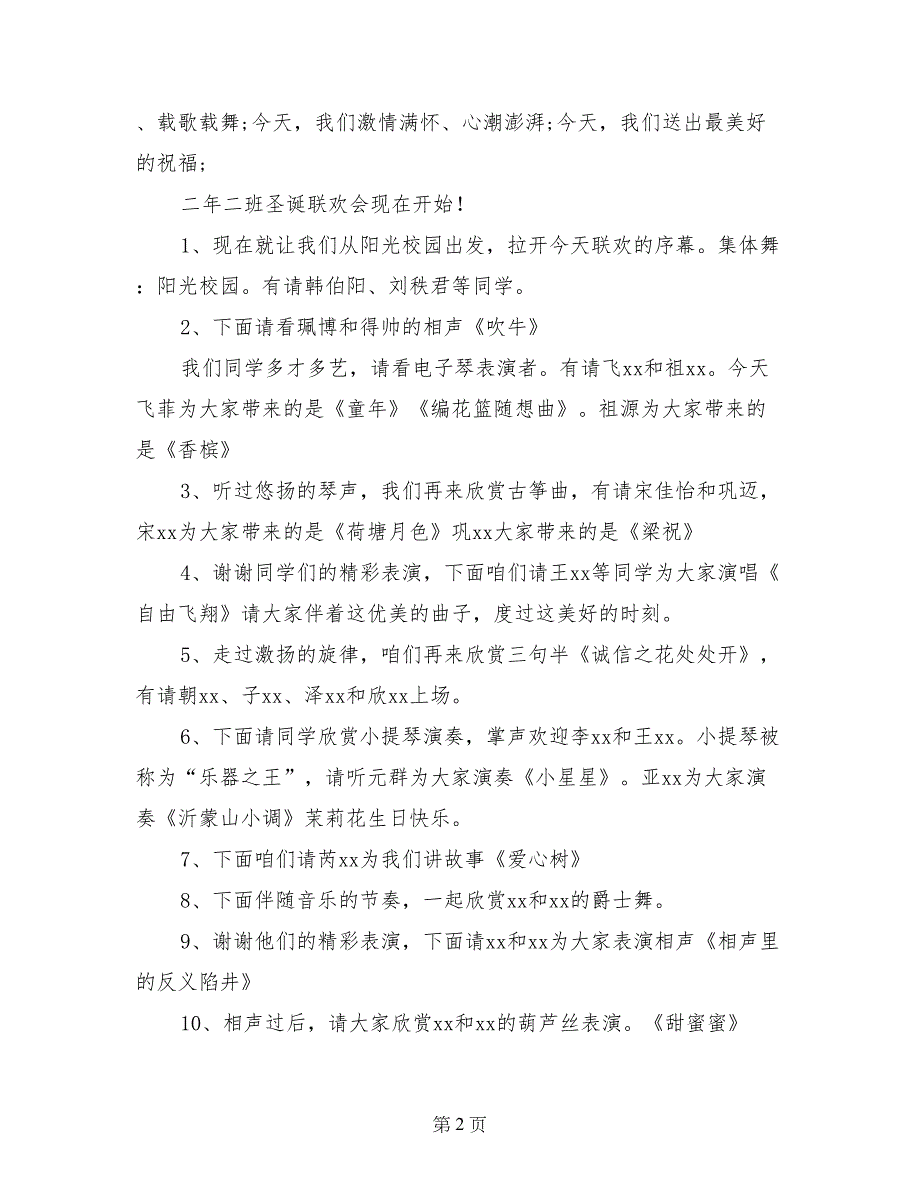 、载歌载舞;今天，我们激情满怀、心潮澎湃;今天，我们送出最美好
的祝福;
二年二班圣诞联欢会现在开始！
1、现在就让我们从阳光校园出发，拉开今天联欢的序幕。集体舞
：阳光校园。有请韩伯阳、刘秩君等同学。
2、下面请看珮博和得帅的相声《吹牛》
我们同学多才多艺，请看电子琴表演者。有请飞xx和祖xx。今天
飞菲为大家带来的是《童年》《编花篮随想曲》。祖源为大家带来的
是《香槟》
3、听过悠扬的琴声，我们再来欣赏古筝曲，有请宋佳怡和巩迈，
宋xx为大家带来的是《荷塘月色》巩xx大家带来的是《梁祝》
4、谢谢同学们的精彩表演，下面咱们请王xx等同学为大家演唱《
自由飞翔》请大家伴着这优美的曲子，度过这美好的时刻。
5、走过激扬的旋律，咱们再来欣赏三句半《诚信之花处处开》，
有请朝xx、子xx、泽xx和欣xx上场。
6、下面请同学欣赏小提琴演奏，掌声欢迎李xx和王xx。小提琴被
称为“乐器之王”，请听元群为大家演奏《小星星》。亚xx为大家演
奏《沂蒙山小调》茉莉花生日快乐。
7、下面咱们请芮xx为我们讲故事《爱心树》
8、下面伴随音乐的节奏，一起欣赏xx和xx的爵士舞。
9、谢谢他们的精彩表演，下面请xx和xx为大家表演相声《相声里
的反义陷井》
10、相声过后，请大家欣赏xx和xx的葫芦丝表演。《甜蜜蜜》
第 2 页